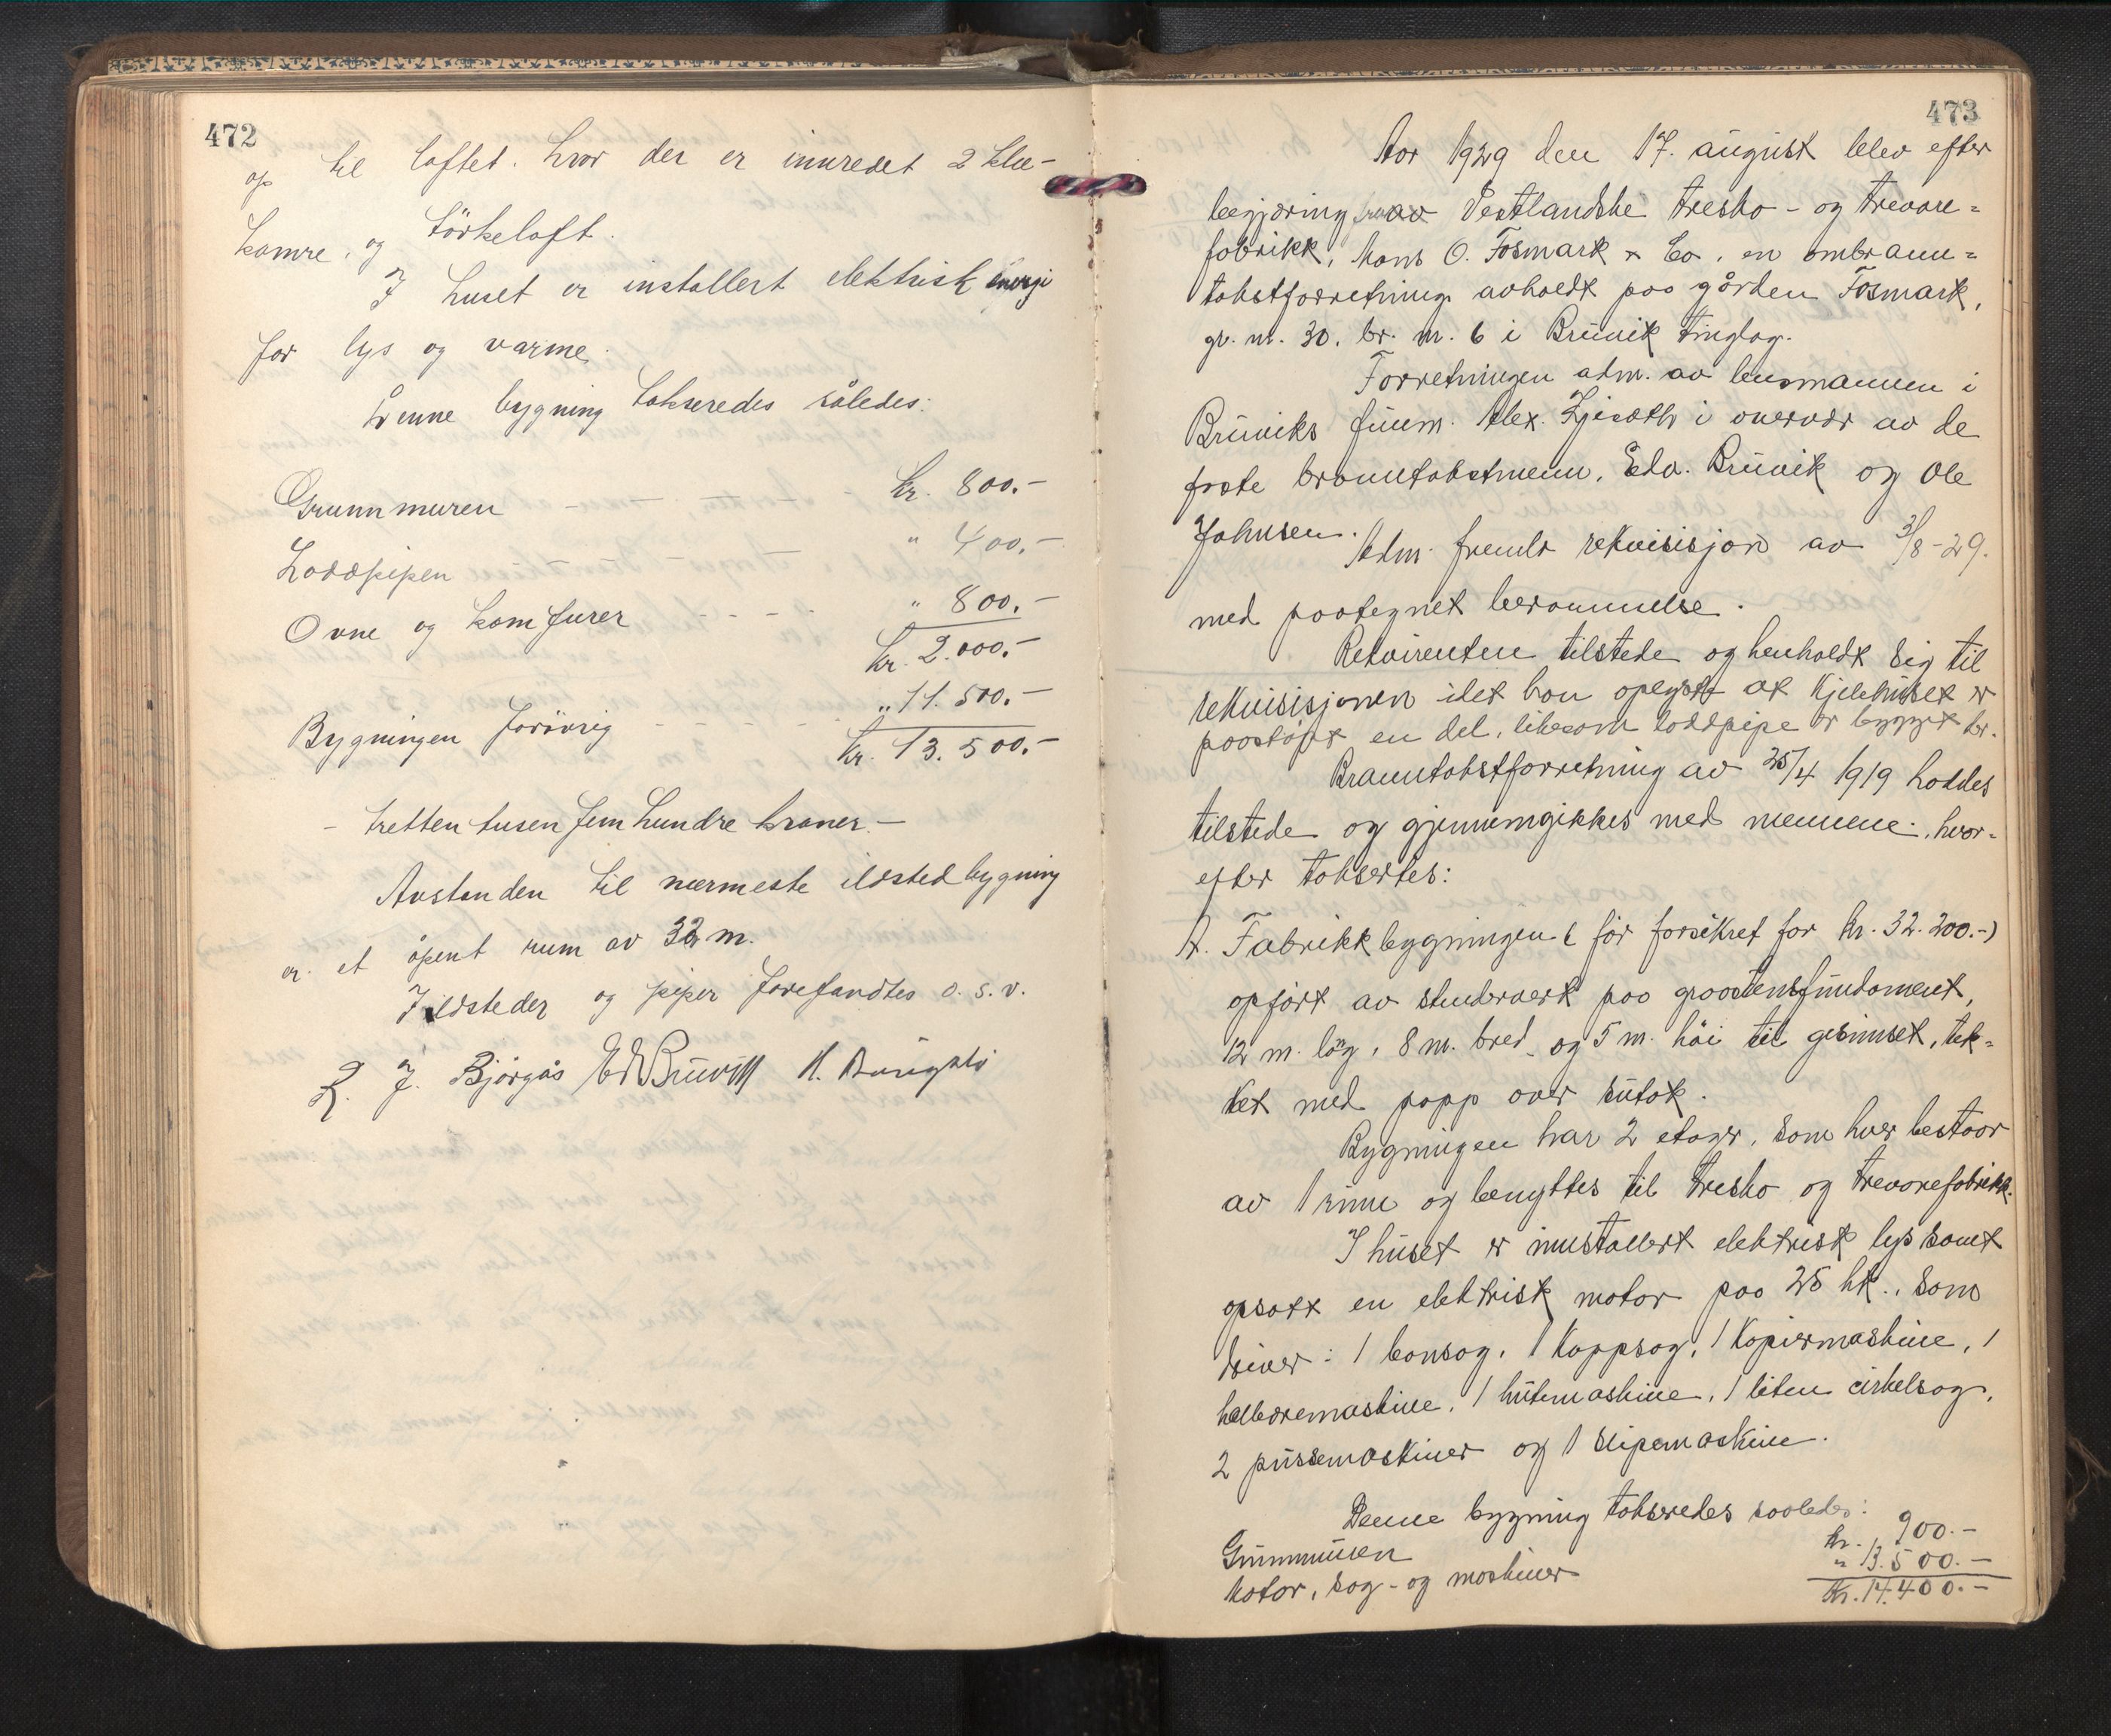 472
op til loftet. hvor der er innredet 2 kle-
kamre, og törkeloft.
I huset er installert elektrisk energi
for lys og varme.
Denne bygning takseredes således:
Grunnmuren - - - kr. 800.-
Loddpipen - - " 400.-
Ovne og komfurer - - - - " 800.-
kr. 2.000.-
Bygningen forövrig - - - - " 11.500.-
kr. 13.500.-
- tretten tusen fem hundre kroner. -
Avstanden til nærmeste ildstedbygning
er et åpent rum av 32 m.
Ildsteder og piper forefandtes o.s.v.
L. J. Bjørgås Ed Bruvik
473
Aar 1929 den 17. august blev efter
begjæring av Vestlandske tresko- og trevare=
fabrikk, Mons O. Fosmark & Co, en ombrann=
takstforretning avholdt paa gården Fosmark,
gr. nr. 30. br. nr. 6 i Bruvik tinglag.
Forretningen adm. av lensmannen i
Bruviks fuum. Alex. i overvær av de
faste branntakstmenn, Edv. Bruvik og Ole
Johnsen.
Adm. fremla rekvisisjon av 3/8-29.
med paategnet berammelse.
Rekvirenten tilstede og henholdt sig til
rekvisisjonen idet han oplyste at kjelehuset er
paastöpt en del, likesom loddpipe er bygget her.
Branntakstforretning av 25/4 1919 haddes
tilstede og gjennemgikkes med mennene, hvor=
efter taksertes:
A. Fabrikkbygningen (för forsikret for kr. 32.200.-)
opfört av stenderverk paa graastensfundament,
12 m. lang, 8 m. bred og 5 m. höi til gesimset, tek=
ket med papp over sutak.
Bygningen har 2 etager, som hver bestaar
av 1 rum og benyttes til tresko og trevarefabrikk.
I huset er innstallert elektrisk lys samt
opsatt en elektrisk motor paa 25 hk., som
driver: 1 bansag, 1 kappsag, 1 kopiermaskine, 1
hælboremaskine, 1 hulemaskine, 1 liten cirkelsag,
2 pussemaskiner og 1 slipemaskine.
Denne bygning takseredes saaledes:
Grunnmuren kr. 900.-
Motor, sag- og maskiner " 13.500.-
Kr. 14.400.-